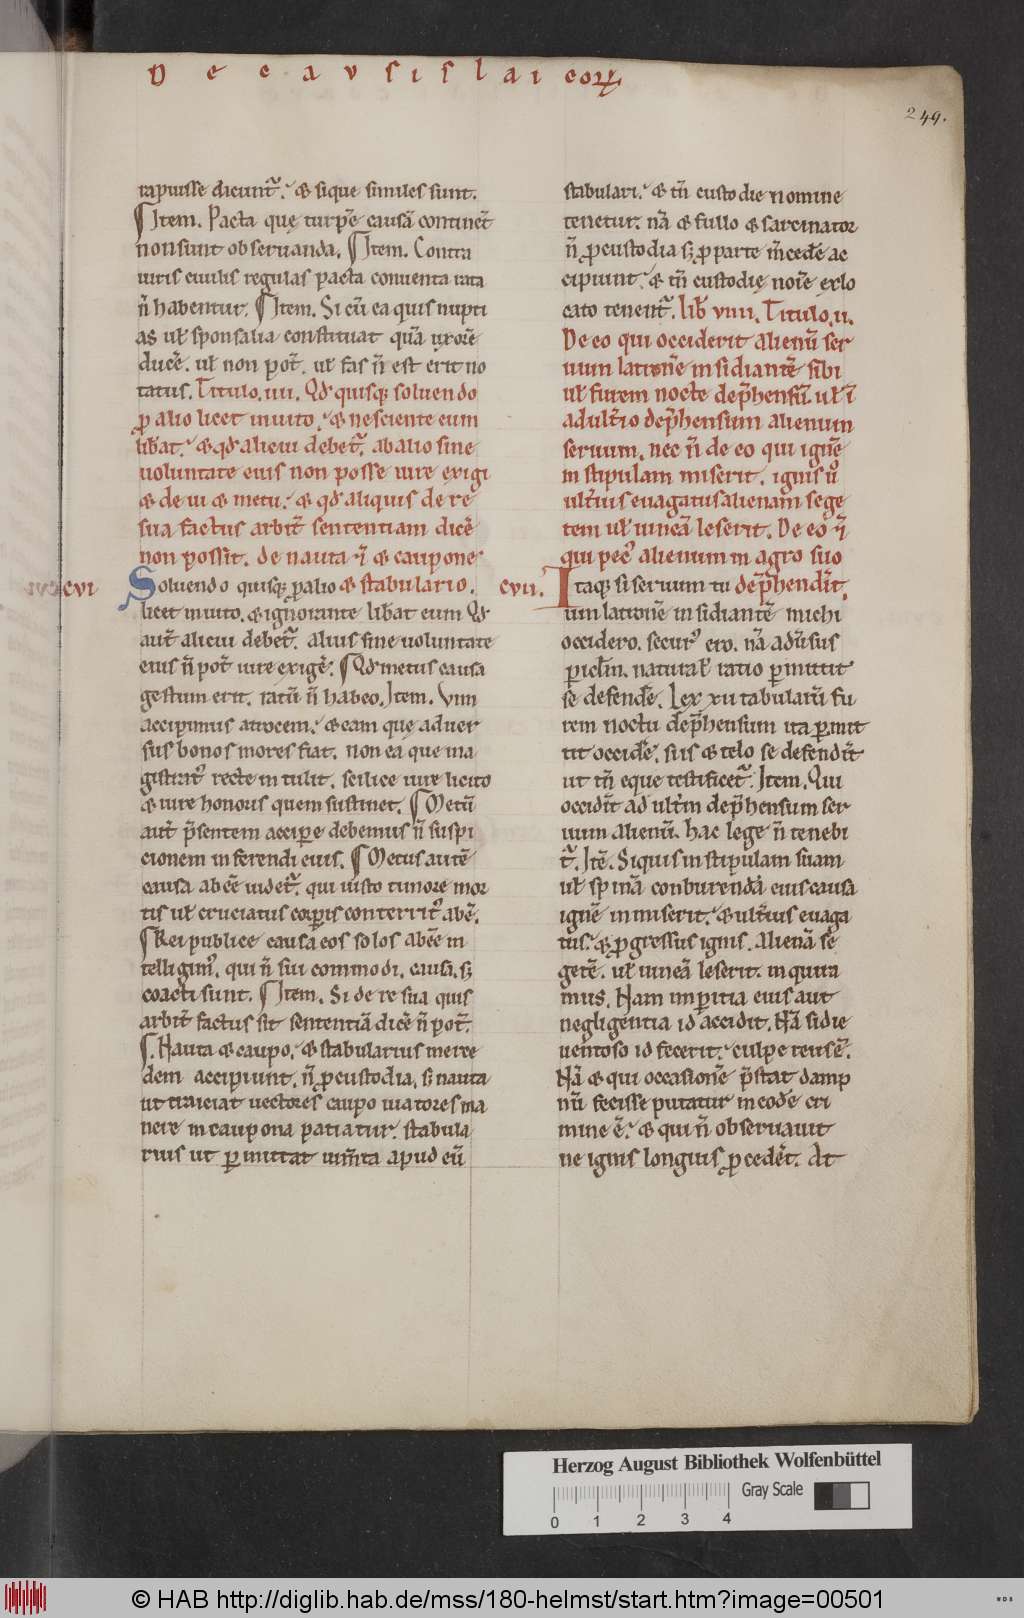 De causis laicoꝝ
249.
rapuisse dicunt᷑. ⁊ siq̄ue similes sunt.
¶ Item. Pacta quę turpē causā continēt
non sunt obseruanda. ¶ Item. Contra
iuris ciuilis regulas pacta conuenta rata
ñ habentur. ¶ Item. Si cū ea quis nupti
as ul̄ sponsalia constituat quā uxorē
ducē. ul̄ non pot̄. ul̄ fas ñ est erit no
tatus. Titulo. iiii. Qđ quisq; soluendo
ꝓ alio licet inuito. ⁊ nesciente eum
lib̄at. ⁊ qđ alicui debet᷑. ab alio sine
uoluntate eius non posse iure exigi
⁊ de ui ⁊ metu. ⁊ qđ aliquis de re
sua factus arbit̄ sententiam dicē
non possit. de nauta ⁊ caupone
CVI Soluendo quisq; ꝓ alio ⁊ stabulario.
licet inuito. ⁊ ignorante lib̄at eum Qđ
aut̄ alicui debet᷑. alius sine uoluntate
eius ñ pot̄ iure exigē. ¶ Qđ metus causa
gestum erit. ratū ñ habeo. Item. Vim
accipimus atrocem. ⁊ eam quę aduer
sus bonos mores fiat. non ea que ma
gistrat᷒ recte intulit. scilice iure licito
⁊ iure honoris quem sustinet. ¶ Metū
aut̄ p̄sentem accipere debemus ñ suspi
cionem inferendi eius. ¶ Metus autē
causa abēē uidet᷑. qui iusto timore mor
tis ul̄ cruciatus corꝑis conterrit᷒ abē.
¶ Rei publice causa eos solos abēē in
telligim᷒. qui ñ sui commodi. causa. s;
coacti sunt. ¶ Item. Si de re sua quis
arbit̄ factus sit sententiā dicē ñ pot̄.
¶. Nauta ⁊ caupo. ⁊ stabularius merce
dem accipiunt. ñ ꝓ custodia. s; nauta
ut traiciat uectores caupo uiatores ma
nere in caupona patiatur. stabula
rius ut ꝑmittat ium̄ta apud eū
stabulari. ⁊ tñ custodie nomine
tenetur. nā ⁊ fullo ⁊ sarcinator
ñ ꝓ custodia s; ꝓ parte m̄cedē ac
cipiunt. ⁊ tñ custodię noīe ex lo
cato tenent᷑. lib̄ viiii. Titulo. ii.
De eo qui occiderit alienū ser
uum latronē insidiantē sibi
ul̄ furem nocte dep̄hensū. ul̄ ī
adult̄io dep̄hensum alienum
seruum. nec ñ de eo qui ignē
in stipulam miserit. ignis ū
ult̄ius euagatus alienam sege
tem ul̄ uineā leserit. De eo ⁊
qui pec᷒ alienum in agro suo
CVII. Itaq; si seruum tu dep̄hendit̄.
um latronē insidiantē michi
occidero. secur᷒ ero. nā adūsus
pericl̄m. natural̄ ratio ꝑmittit
se defendē. Lex xii tabularū fu
rem noctu dep̄hensum ita ꝑmit
tit occidē. si is ⁊ telo se defendit̄
ut tñ eque testificet᷑. Item. Qui
occidit̄ adult̄m dep̄hensum ser
uum alienū. hac lege ñ tenebi
t᷑. Itē. Si quis in stipulam suam
ul̄ spinā conburendā eius causa
ignē inmiserit. ⁊ ult̄ius euaga
tus. ⁊ ꝓgressus ignis. alienā se
getē. ul̄ uineā leserit. inquira
mus. Nam imꝑitia eius aut
negligentia id accidit. Nā si die
uentoso id fecerit. culpe reus ē.
Nā ⁊ qui occasionē p̄stat damp
nū fecisse putatur in eodē cri
mine ē. ⁊ qui ñ obseruauit
ne ignis longius ꝓcedēt. At
Herzog August Bibliothek Wolfenbüttel
Gray Scale
0 1 2 3 4
© HAB http://diglib.hab.de/mss/180-helmst/start.htm?image=00501